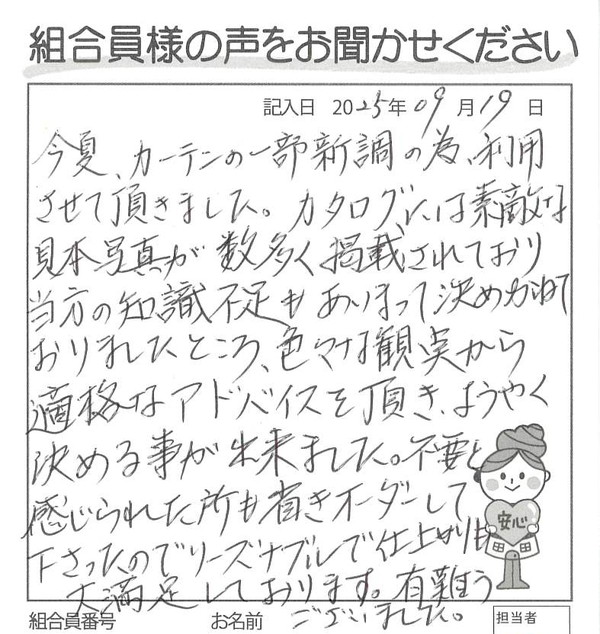 組合員様の声をお聞かせください
記入日 2025年09月19日
今夏、カーテンの一部新調の為、利用
させて頂きました。カタログには素敵な
見本写真が数多く掲載されており
当方の知識不足もあいまって決めかねて
おりましたところ、色々な観点から
適格なアドバイスを頂き、ようやく
決める事が出来ました。不要と
感じられた所も省きオーダーして
下さったのでリーズナブルで仕上がりも
大満足しております。有難う
ございました。
安心
組合員番号 お名前 担当者